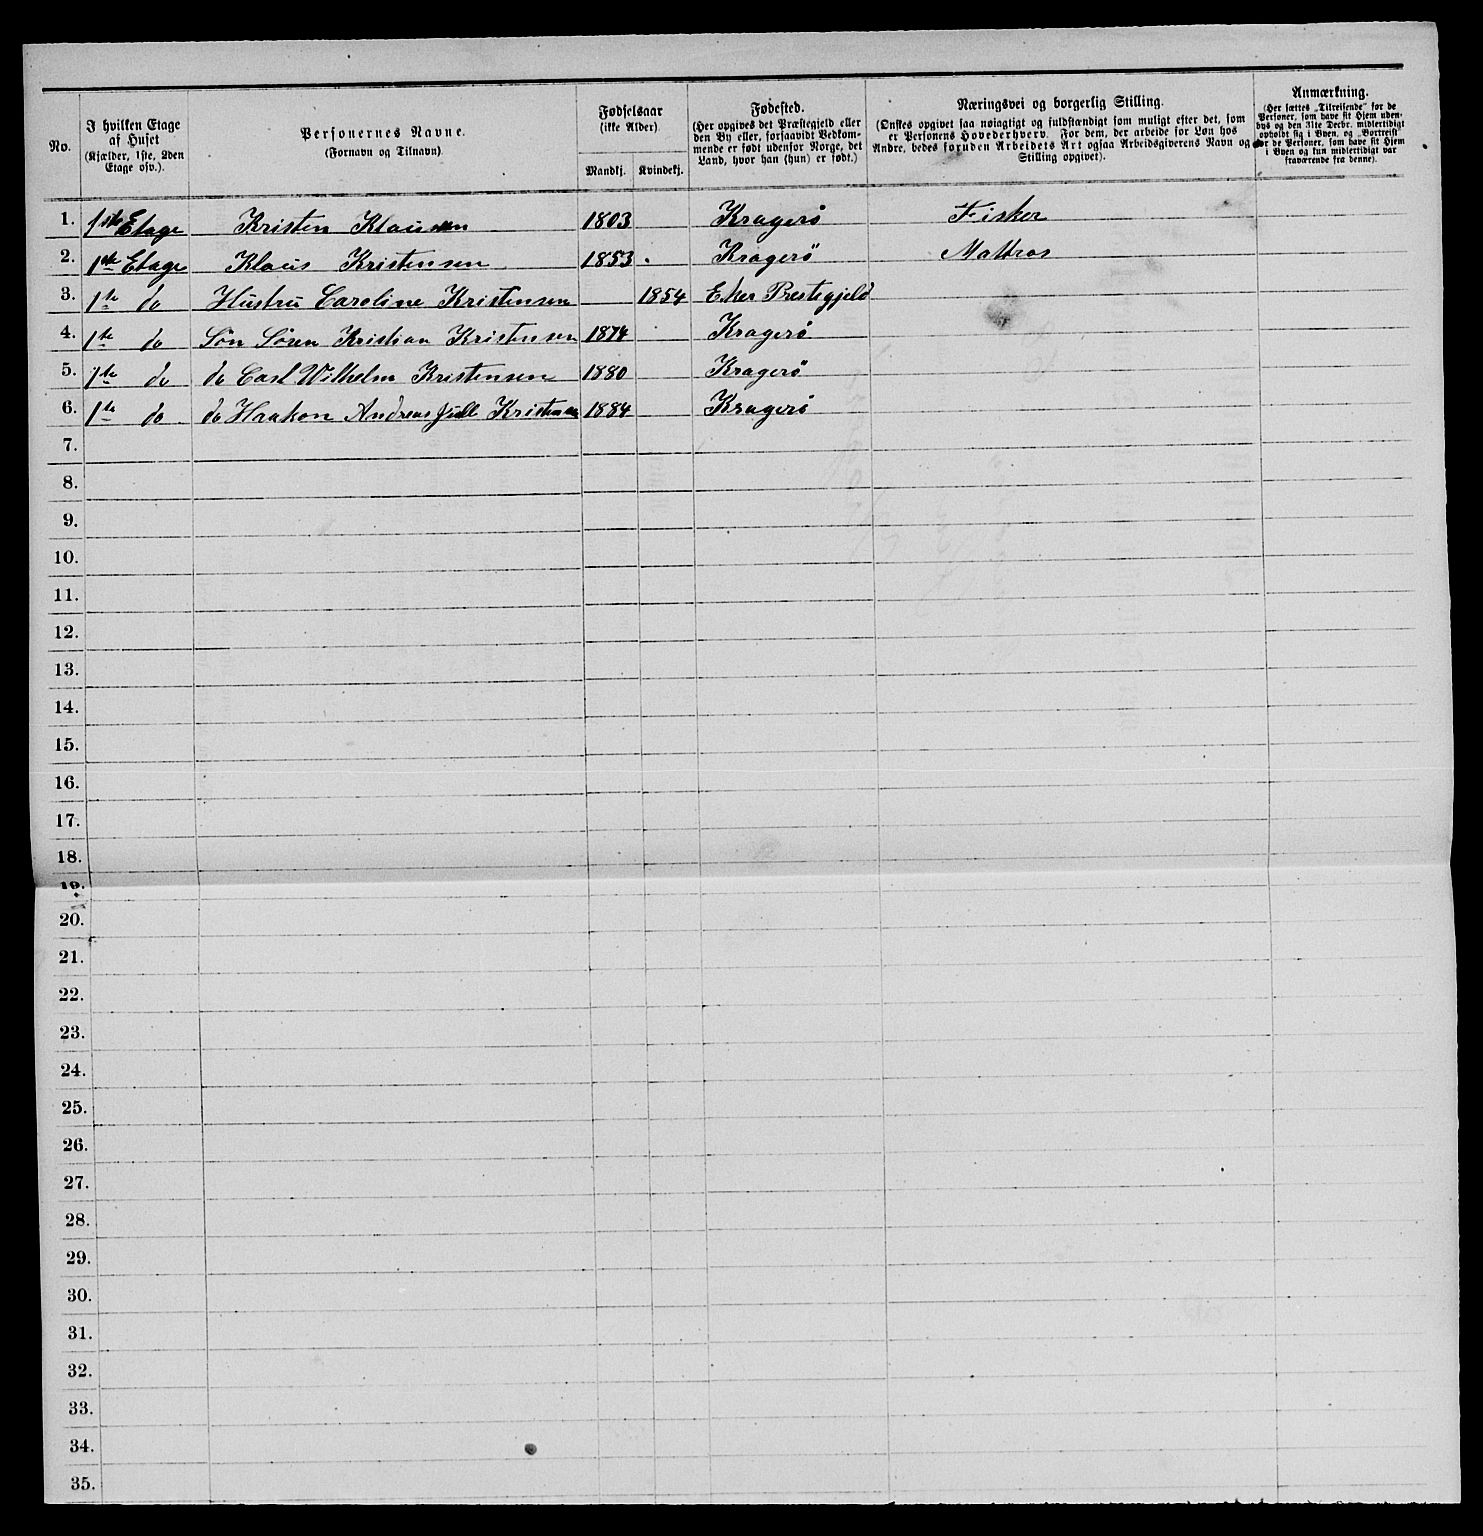 No.
I hvilken Etage
af Huset
(Kjælder, 1ste, 2den
Etage osv.).
Personernes Navne.
(Fornavn og Tilnavn).
Fødselsaar
(ikke Alder).
Mandkj. Kvindekj.
Fødested.
(Her opgives det Præstegjeld eller
den By eller, forsaavidt Vedkom-
mende er født udenfor Norge, det
Land, hvor han (hun) er født.)
Næringsvei og borgerlig Stilling.
(Ønskes opgivet saa nøiagtigt og fuldstændigt som muligt efter det, som
er Personens Hovederhverv. For dem, der arbeide for Løn hos
Andre, bedes foruden Arbeidets Art ogsaa Arbeidsgiverens Navn og
Stilling opgivet).
Anmærkning.
(Her sættes „Tilreisende" for de
Personer, som have sit Hjem uden-
bys og den 31te Decbr. midlertidigt
opholdt sig i Byen, og „Bortreist"
for de Personer, som have sit Hjem
i Byen og kun midlertidigt var
fraværende fra denne).
1. 1ste Etage Kristen Klausen 1803 Kragerö Fisker
2. 1ste Etage Klaus Kristensen 1853 Kragerö Mattros
3. 1ste do Hustru Caroline Kristensen 1854 Eker Prestegjeld
4. 1ste do Søn Sören Kristian Kristensen 1874 Kragerö
5. 1ste do do Carl Wilhelm Kristensen 1880 Kragerö
6. 1ste do do Haakon Andreas Kristensen 1884 Kragerö
7.
8.
9.
10.
11.
12.
13.
14.
15.
16.
17.
18.
19.
20.
21.
22.
23.
24.
25.
26.
27.
28.
29.
30.
31.
32.
33.
34.
35.